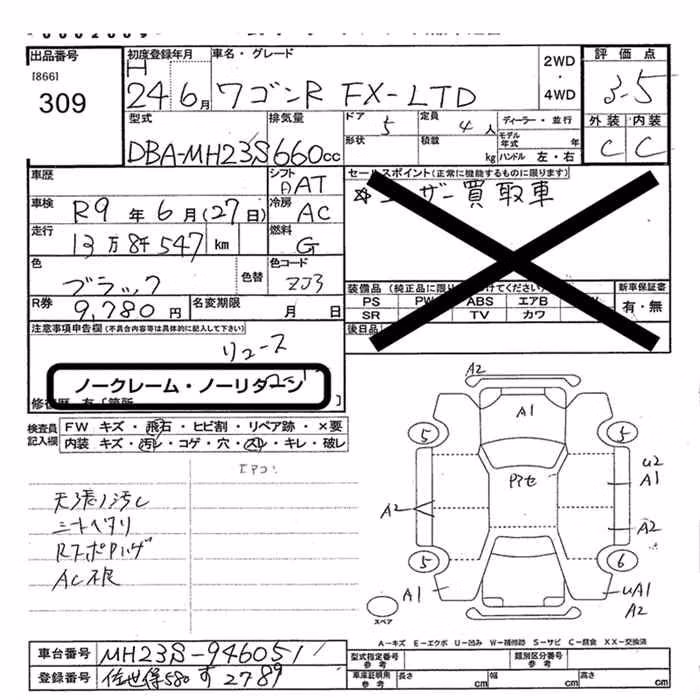 出品番号
[866]
309
初度登録年月
H
24 6月
車名・グレード
ワゴンR FX-LTD
2WD
・
4WD
評価点
3.5
外装 内装
C C
型式
DBA-MH23S
排気量
660cc
ドア
5
形状
定員
4人
積載
kg
ディーラー・並行
モデル
年式 年
ハンドル 左・右
車歴
シフト
AT
車検
R9年6月(27日)
冷房
AC
走行
13万8千547 km
燃料
G
色
ブラック
色替
色コード
ZJ3
R券
9,780円
名変期限
月 日
セールスポイント(正常に機能するものに限ります)
ユーザー買取車
装備品
PS PW ABS エアB
SR TV カワ
新車保証書
有・無
後日品
注意事項申告欄(不具合内容等は具体的に記入して下さい)
リユース
ノークレーム・ノーリターン
検査員
記入欄
FW キズ・飛石・ヒビ割・リペア跡・×要
内装 キズ・汚レ・コゲ・穴・スレ・キレ・破レ
エアコン
天張リ汚レ
シートヘタリ
AC不良
A2
A1
5
5
U2
A1
A2
A2
5
6
A1
UA1
A2
スペア
A-キズ E-エクボ U-凹み W-補修跡 S-サビ C-腐食 XX-交換済
車台番号
MH23S-946051
登録番号
佐世保580 す 2789
型式指定番号
参考
類別区分番号
参考
車庫証明用
参考
長さ cm
幅 cm
高さ cm